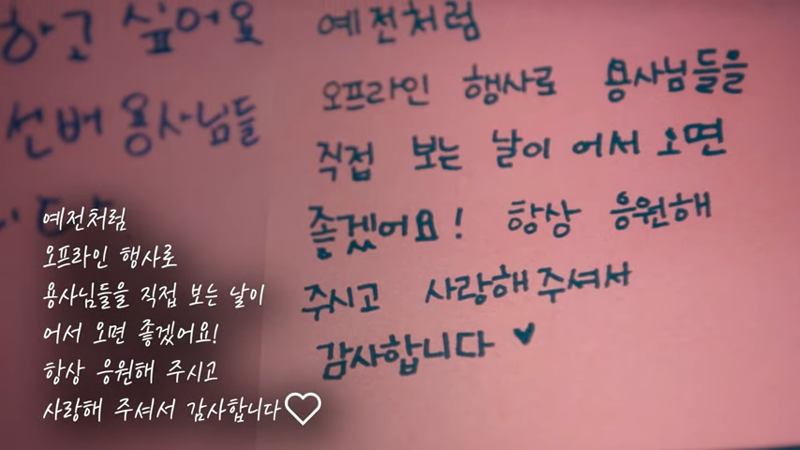 하고 싶어요
선버 용사님들
예전처럼
오프라인 행사로 용사님들을
직접 보는 날이 어서 오면
좋겠어요! 항상 응원해
주시고 사랑해 주셔서
감사합니다 ♥
예전처럼
오프라인 행사로
용사님들을 직접 보는 날이
어서 오면 좋겠어요!
항상 응원해 주시고
사랑해 주셔서 감사합니다♡